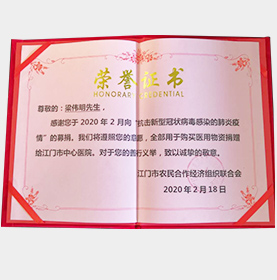 荣誉证书
HONORARY CREDENTIAL
尊敬的:梁伟明先生,
感谢您于2020年2月向“抗击新型冠状病毒感染的肺炎疫
情”的募捐。我们将遵照您的意愿,全部用于购买医用物资捐赠
给江门市中心医院。对于您的善行义举,致以诚挚的敬意。
江门市农民合作经济组织联合会
2020年2月18日